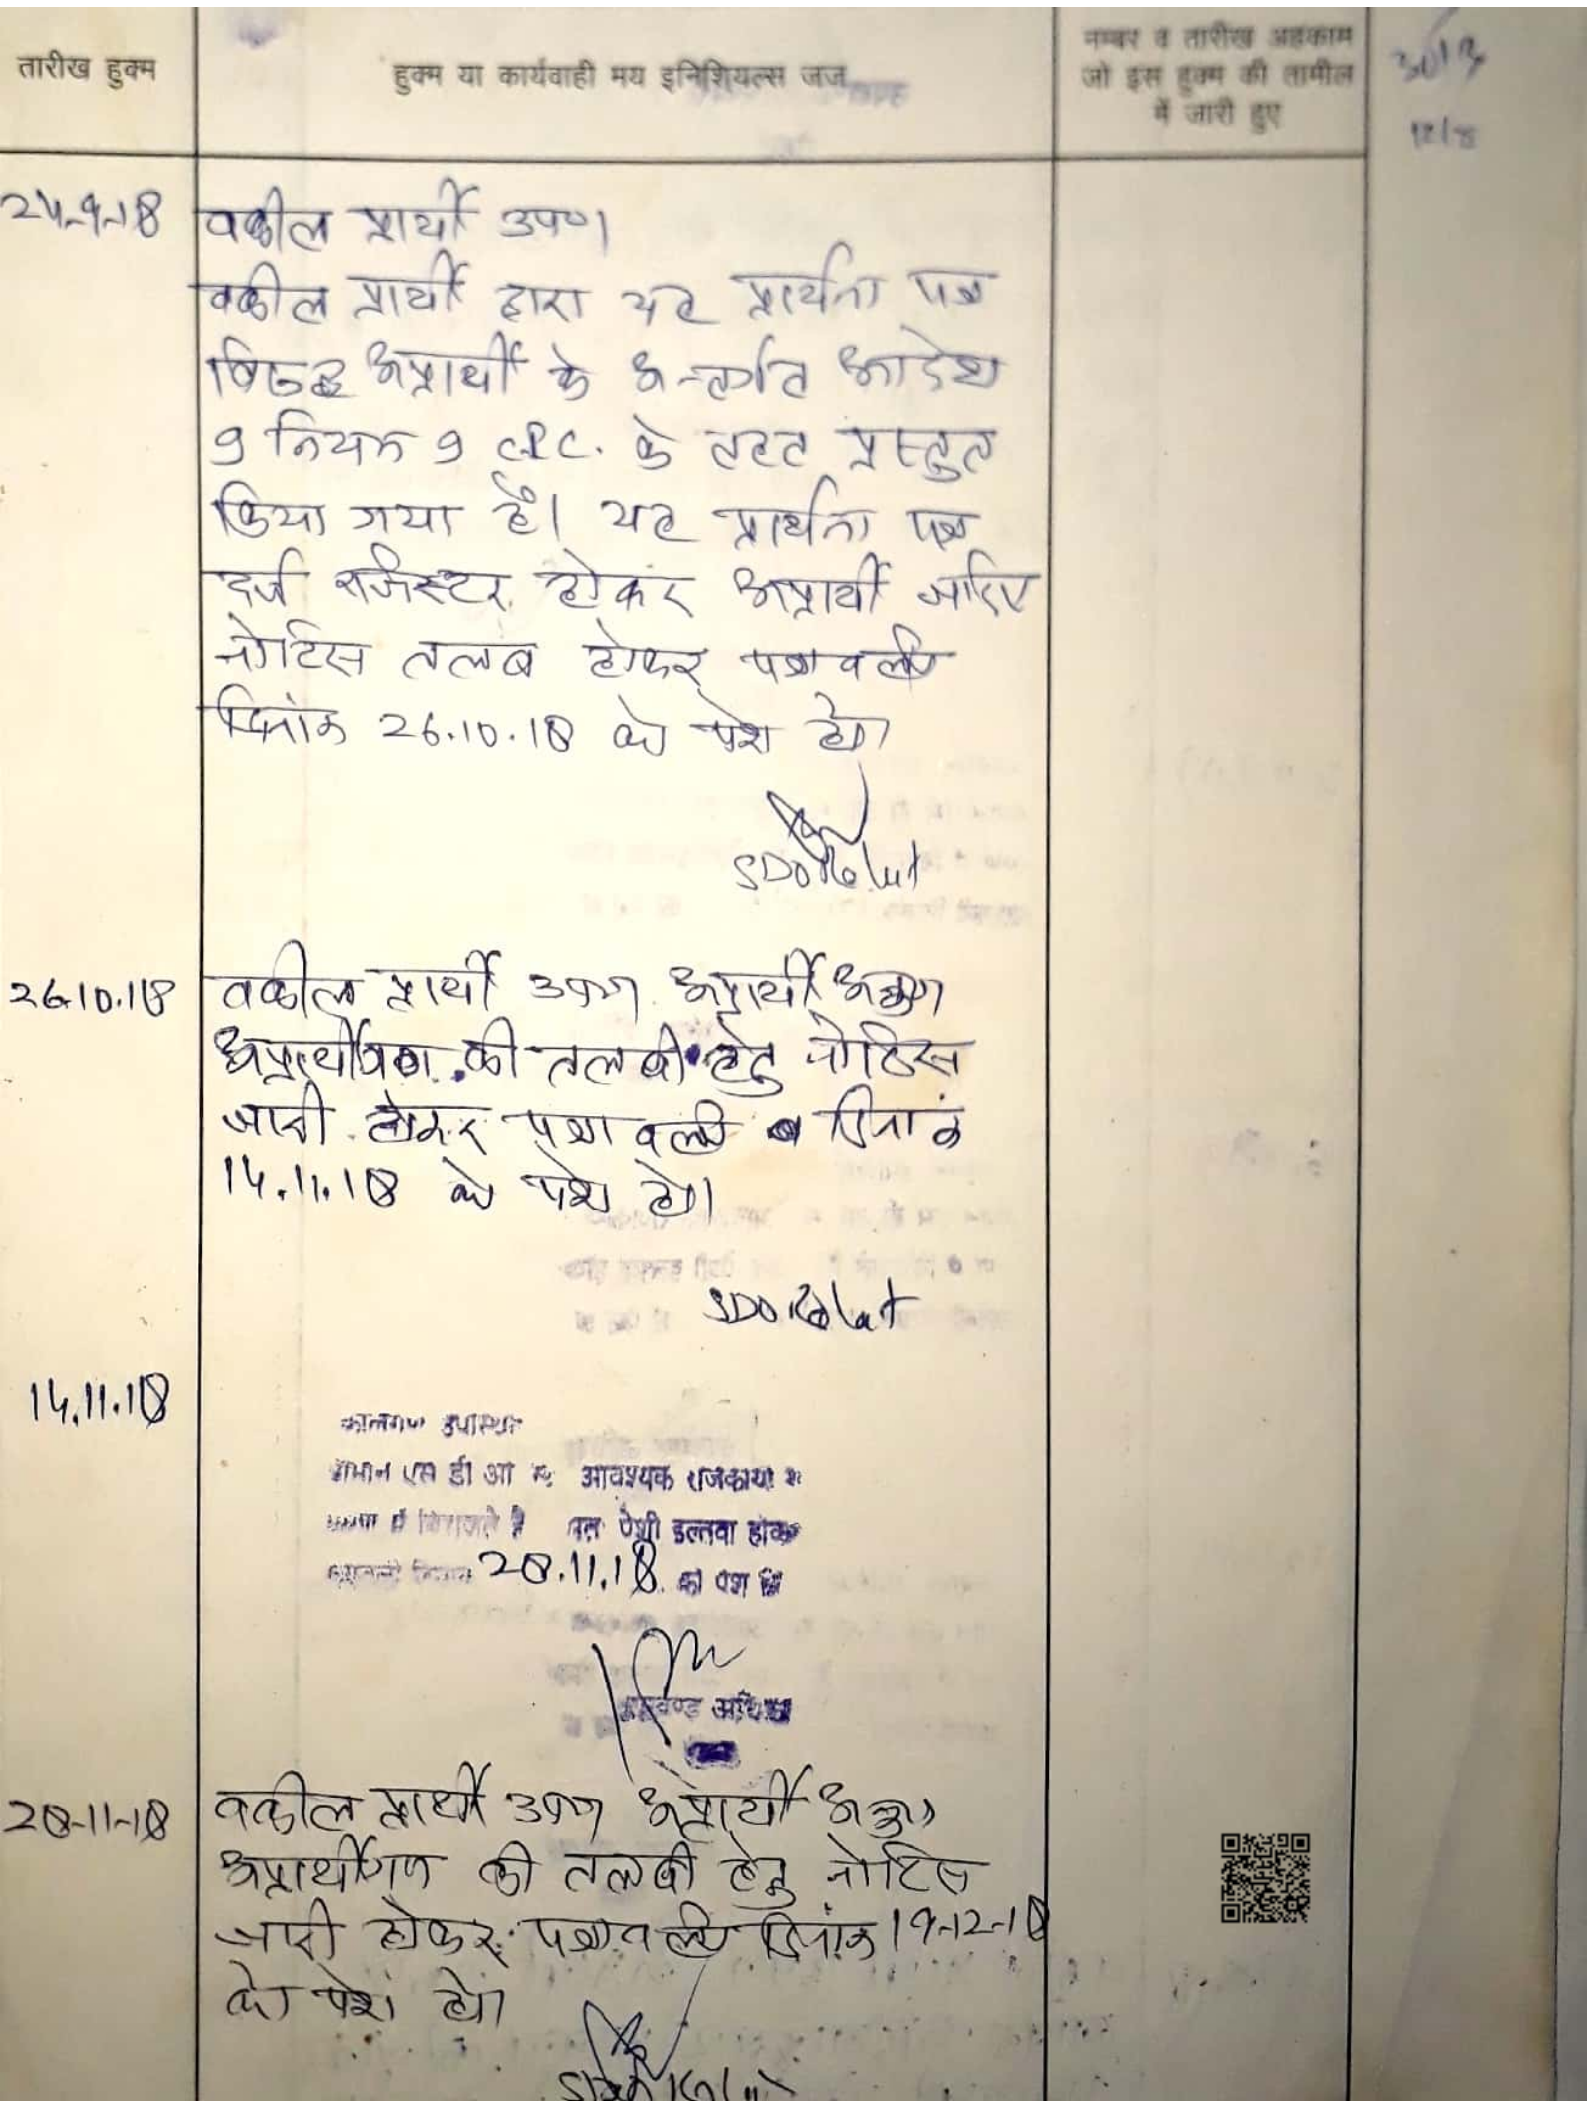 तारीख हुक्म
हुक्म या कार्यवाही मय इनिशियल्स जज
नम्बर व तारीख अहकाम
जो इस हुक्म की तामील
में जारी हुए
24-9-18
वकील प्रार्थी उप०।
वकील प्रार्थी द्वारा यह प्रार्थना पत्र
विरूद्ध अप्रार्थी के अन्तर्गत आदेश
9 नियम 9 CPC. के तहत प्रस्तुत
किया गया है। यह प्रार्थना पत्र
दर्ज रजिस्टर होकर अप्रार्थी जरिए
नोटिस तलब होकर पत्रावली
दिनांक 26.10.18 को पेश हो।
SDO
26.10.18
वकील प्रार्थी उप० अप्रार्थी अनु०
अप्रार्थीगण की तलबी हेतु नोटिस
जारी होकर पत्रावली दिनांक
14.11.18 को पेश हो।
SDO
14.11.18
एस डी आ आवश्यक राजकार्य
पेशी इल्तवा होकर
28.11.18 को पेश हो
28-11-18
वकील प्रार्थी उप० अप्रार्थी अनु०
अप्रार्थीगण की तलबी हेतु नोटिस
जारी होकर पत्रावली दिनांक 19-12-18
को पेश हो।